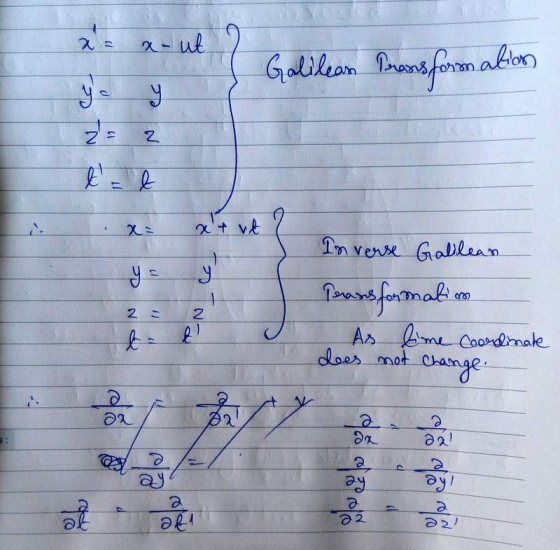 x' = x - ut
y' = y
z' = z
t' = t
Galilean Transformation
∴ x = x' + vt
y = y'
z = z'
t = t'
Inverse Galilean
Transformation
As time coordinate
does not change.
∴ ∂/∂x = ∂/∂x' + v
∂/∂y =
∂/∂t = ∂/∂t'
∂/∂x = ∂/∂x'
∂/∂y = ∂/∂y'
∂/∂z = ∂/∂z'